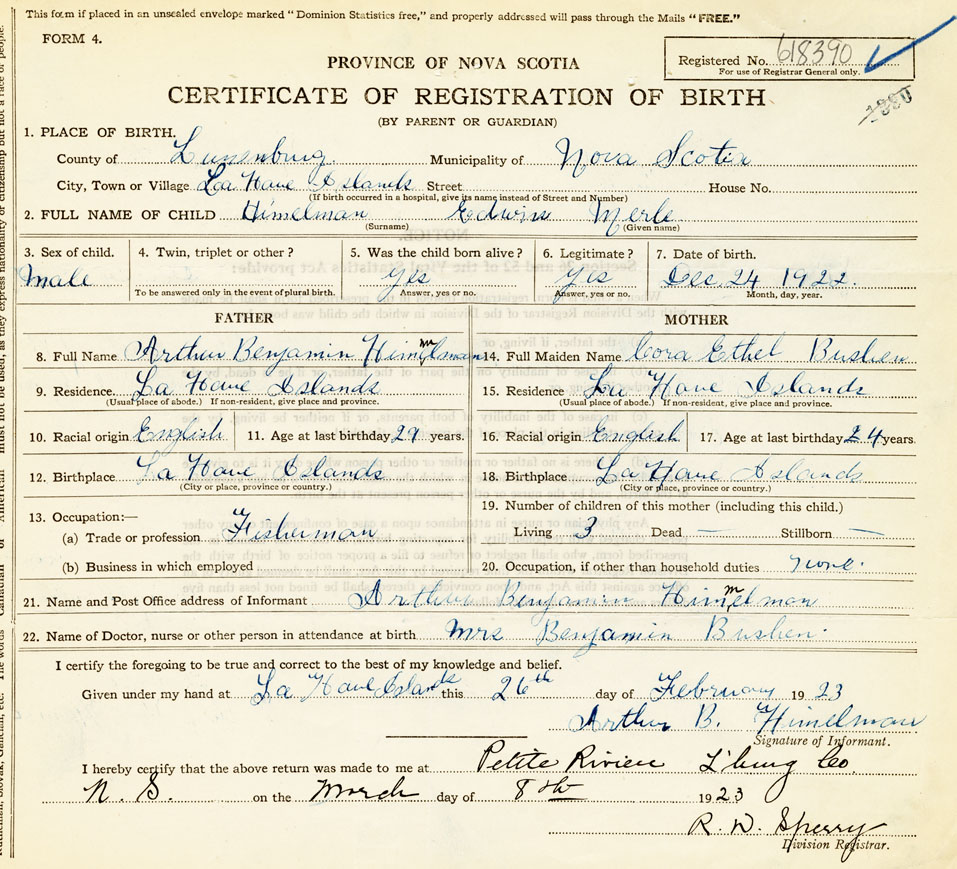 This form if placed in an unsealed envelope marked "Dominion Statistics free," and properly addressed will pass through the Mails "FREE."
FORM 4.
Registered No. 618390
For use of Registrar General only.
PROVINCE OF NOVA SCOTIA
CERTIFICATE OF REGISTRATION OF BIRTH
(BY PARENT OR GUARDIAN)
1. PLACE OF BIRTH.
County of Lunenburg Municipality of Nova Scotia
City, Town or Village La Have Islands Street House No.
(If birth occurred in a hospital, give its name instead of Street and Number)
2. FULL NAME OF CHILD Himelman Edwin Merle
(Surname) (Given name)
3. Sex of child. 4. Twin, triplet or other? 5. Was the child born alive? 6. Legitimate? 7. Date of birth.
Male Yes Yes Dec 24 1922.
To be answered only in the event of plural birth. Answer, yes or no. Answer, yes or no. Month, day, year.
FATHER MOTHER
8. Full Name Arthur Benjamin Himmelman 14. Full Maiden Name Cora Ethel Bushen
9. Residence La Have Islands 15. Residence La Have Islands
(Usual place of abode.) If non-resident, give place and province. (Usual place of abode.) If non-resident, give place and province.
10. Racial origin English 11. Age at last birthday 29 years. 16. Racial origin English 17. Age at last birthday 24 years.
12. Birthplace La Have Islands 18. Birthplace La Have Islands
(City or place, province or country.) (City or place, province or country.)
13. Occupation:— 19. Number of children of this mother (including this child.)
(a) Trade or profession Fisherman Living 3 Dead — Stillborn —
(b) Business in which employed 20. Occupation, if other than household duties none.
21. Name and Post Office address of Informant Arthur Benjamin Himmelman
22. Name of Doctor, nurse or other person in attendance at birth Mrs Benjamin Bushen.
I certify the foregoing to be true and correct to the best of my knowledge and belief.
Given under my hand at La Have Islands this 26th day of February 1923
Arthur B. Himelman
Signature of Informant.
I hereby certify that the above return was made to me at Petite Riviere L'burg Co.
N. S. on the March day of 8th 1923
R. W. Sperry
Division Registrar.